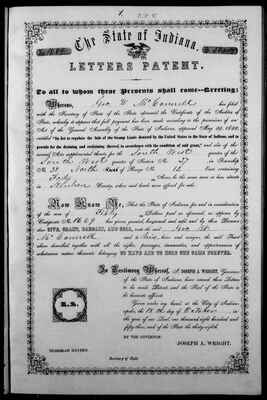 The State of Indiana.
LETTERS PATENT.
To all to whom these Presents shall come—Greeting:
Whereas, Geo. W. McConnell has filed
with the Secretary of State of the State aforesaid the Certificate of the Auditor of
State, whereby it appears that full payment has been made according to the provisions of an
Act of the General Assembly of the State of Indiana, approved May
entitled "An Act to regulate the Sale of the Swamp Lands donated by the United States to the State of Indiana, and to
provide for the draining and reclaiming thereof, in accordance with the condition of said grant," and also of the
North West quarter of the
South West quarter of Section No. 27 in Township
No. 31 North Range of Range No. 12 East containing
Forty Acres, be the same more or less situate in
County,
Now Know Ye, That the State of Indiana for and in consideration
of the sum of Fifty Dollars paid as aforesaid, as appears by
Certificate No. 1669 has given, granted, bargained and sold and by these Presents
does GIVE, GRANT, BARGAIN, AND SELL, unto the said Geo. W.
McConnell and to his heirs and assigns the said Tract
above described together with all the rights, privileges, immunities, and appurtenances of
whatsoever nature thereunto belonging TO HAVE AND TO HOLD THE SAME FOREVER.
In Testimony Whereof, I, JOSEPH A. WRIGHT, Governor
of the State of Indiana, have caused these Letters
to be made Patent and the Seal of the State to
be hereunto affixed.
Given under my hand at the City of Indianapolis,
the 18th day of October in
the year of our Lord, one thousand eight hundred and
fifty three and of the State the thirty-eighth.
L.S.
BY THE GOVERNOR:
JOSEPH A. WRIGHT.
Secretary of State